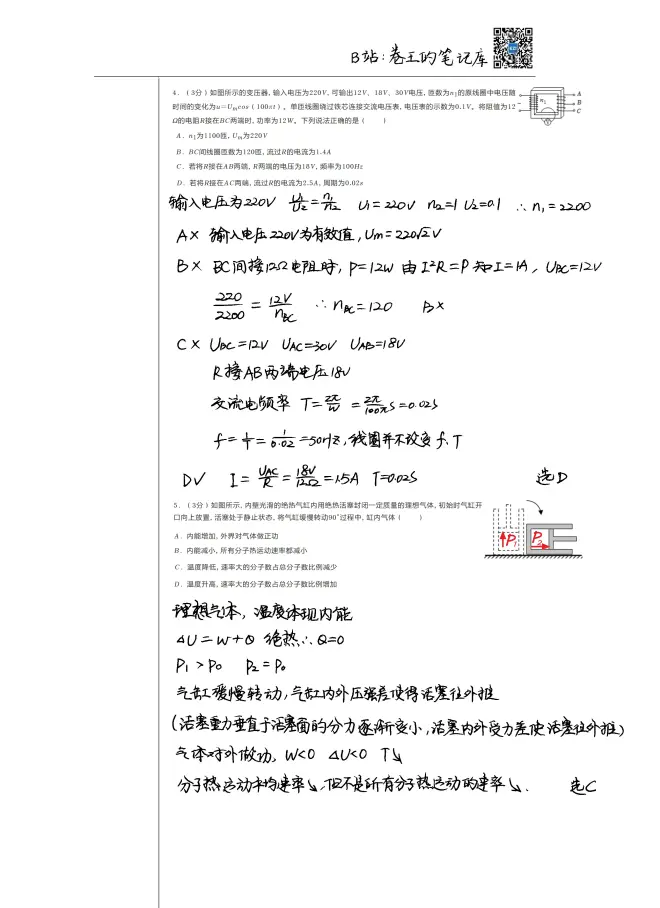 B站:卷王的笔记库
4.(3分)如图所示的变压器,输入电压为220V,可输出12V、18V、30V电压,匝数为n₁的原线圈中电压随
时间的变化为u=Uₘcos(100πt)。单匝线圈绕过铁芯连接交流电压表,电压表的示数为0.1V。将阻值为12
Ω的电阻R接在BC两端时,功率为12W。下列说法正确的是( )
n₁
A
B
C
V
A.n₁为1100匝,Uₘ为220V
B.BC间线圈匝数为120匝,流过R的电流为1.4A
C.若将R接在AB两端,R两端的电压为18V,频率为100Hz
D.若将R接在AC两端,流过R的电流为2.5A,周期为0.02s
输入电压为220V U₁/U₂=n₁/n₂ U₁=220V n₂=1 U₂=0.1 ∴n₁=2200
A× 输入电压220V为有效值,Um=220√2V
B× BC间接12Ω电阻时,P=12W 由I²R=P知I=1A, UBC=12V
220/2200=12V/nBC ∴nBC=120 B×
C× UBC=12V UAC=30V UAB=18V
R接AB两端电压18V
交流电频率 T=2π/w=2π/100πs=0.02s
f=1/T=1/0.02=50Hz,线圈并不改变f、T
D√ I=UAC/R=18V/12Ω=1.5A T=0.02S 选D
5.(3分)如图所示,内壁光滑的绝热气缸内用绝热活塞封闭一定质量的理想气体,初始时气缸开
口向上放置,活塞处于静止状态,将气缸缓慢转动90°过程中,缸内气体( )
P₁
P₂
A.内能增加,外界对气体做正功
B.内能减小,所有分子热运动速率都减小
C.温度降低,速率大的分子数占总分子数比例减少
D.温度升高,速率大的分子数占总分子数比例增加
理想气体,温度体现内能
△U=W+Q 绝热∴Q=0
P₁>P₀ P₂=P₀
气缸缓慢转动,气缸内外压强差使得活塞往外推
(活塞重力垂直于活塞面的分力逐渐变小,活塞内外受力差使活塞往外推)
气体对外做功, W<0 △U<0 T↘
分子热运动平均速率↘,但不是所有分子热运动的速率↘. 选C